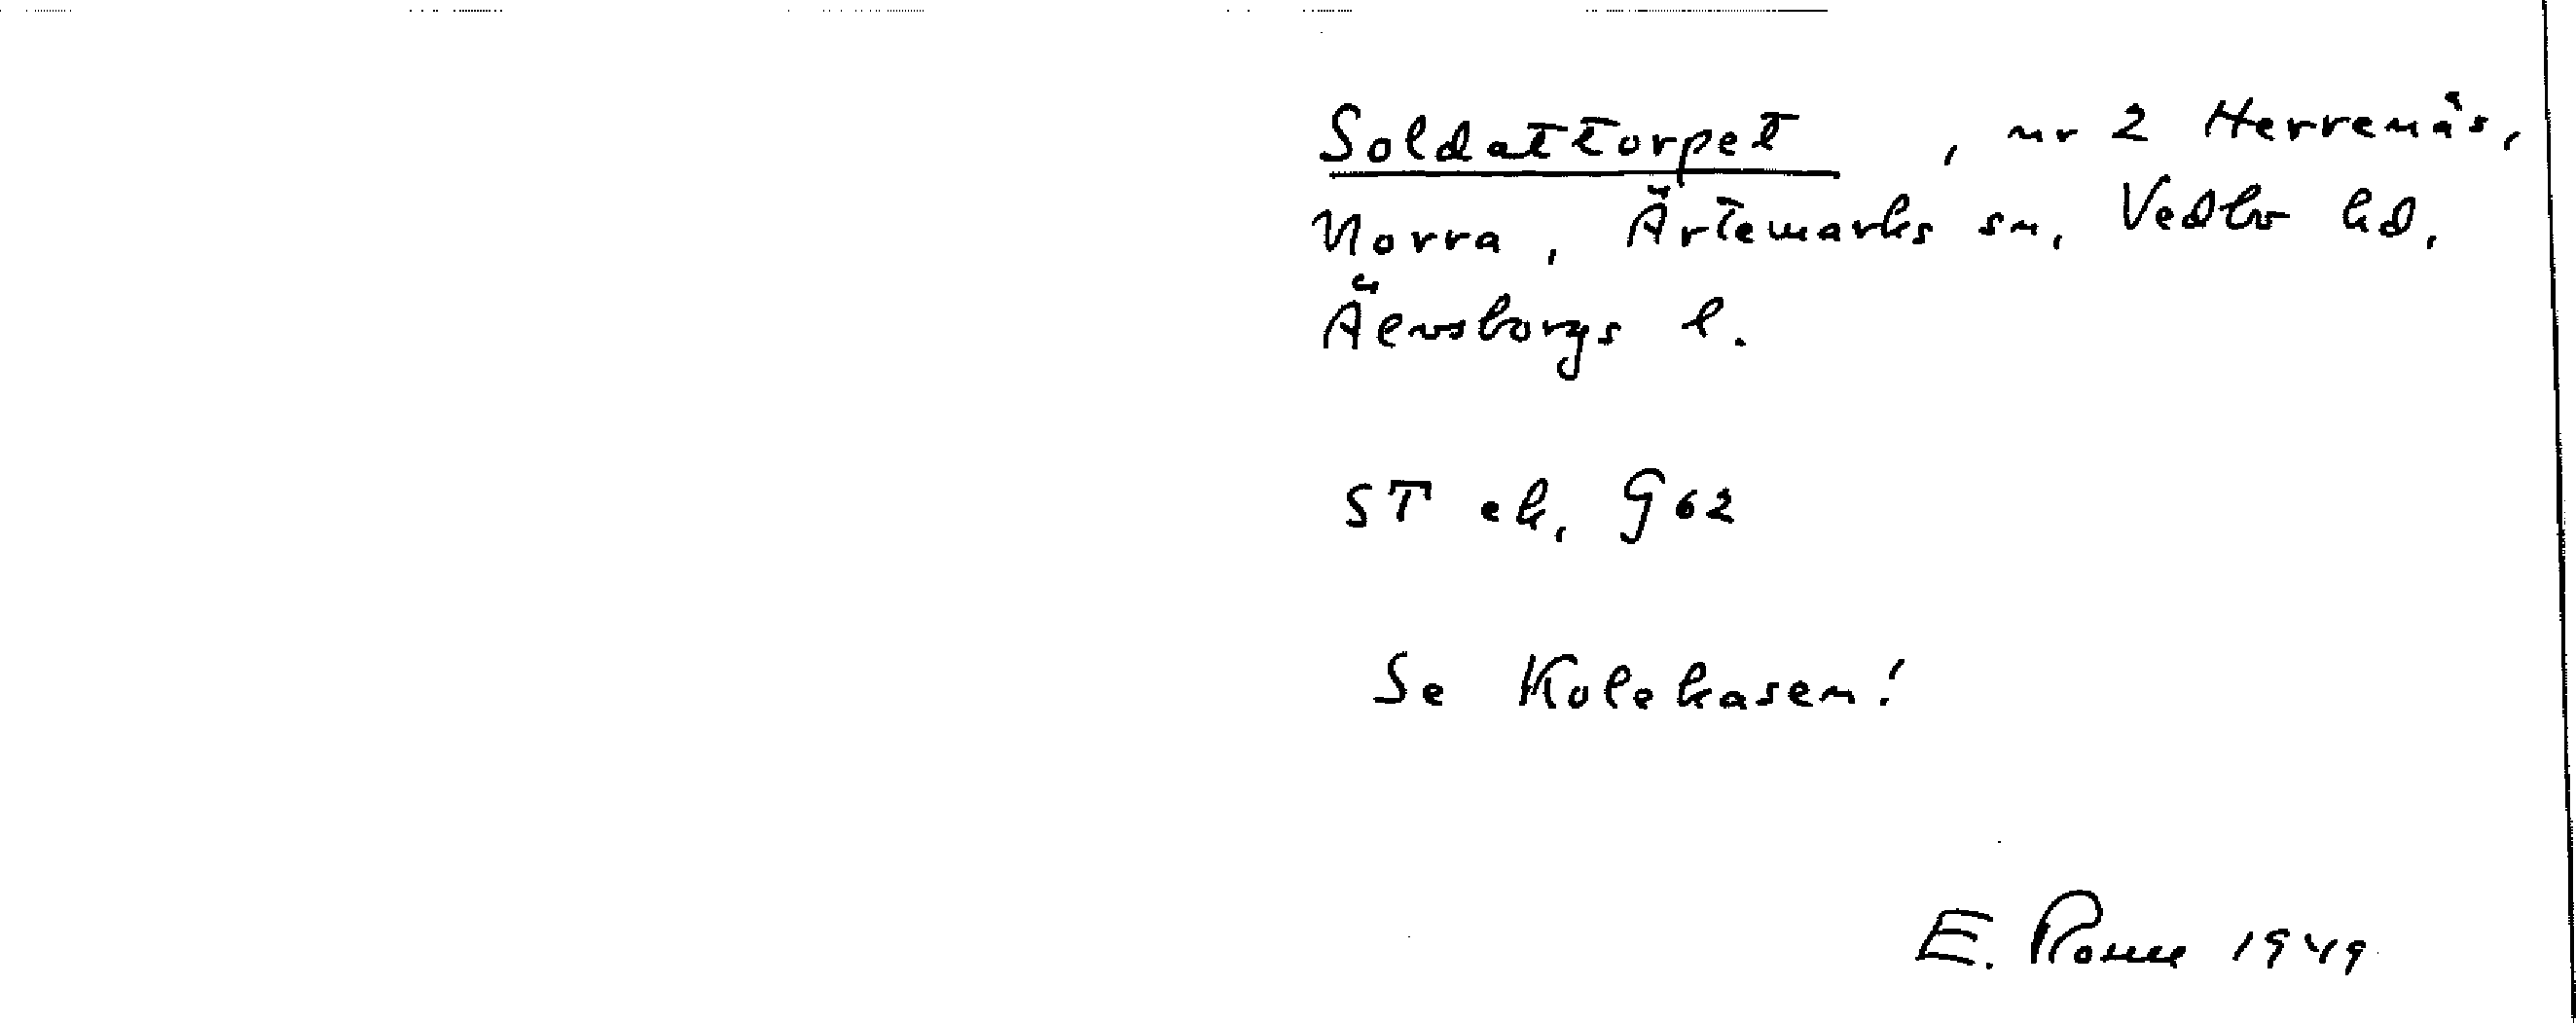 Soldattorpet, nr 2 Herrenäs,
Norra, Ärtemarks sn, Vedbo hd,
Älvsborgs l.
ST ek. G62
Se Kolekasen!
E. 1949